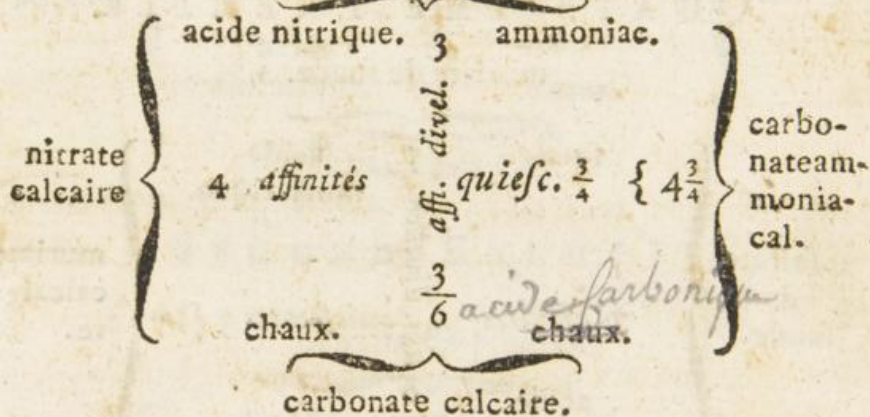 acide nitrique. 3 ammoniac.
nitrate calcaire
4 affinités
affi. divel.
quiesc. 3/4 { 4 3/4
carbo-
nateam-
monia-
cal.
3
6
acide Carbonique
chaux. chaux.
carbonate calcaire.